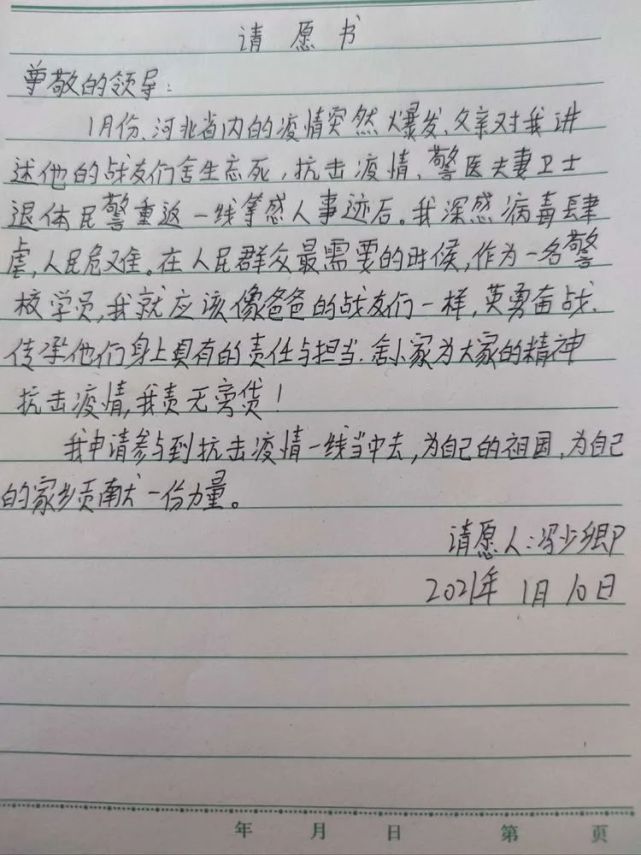 请愿书
尊敬的领导：
1月份、河北省内的疫情突然爆发、父亲对我讲
述他的战友们舍生忘死，抗击疫情、警医夫妻卫士
退休民警重返一线等感人事迹后。我深感病毒肆
虐，人民危难。在人民群众最需要的时候，作为一名警
校学员，我就应该像爸爸的战友们一样，英勇奋战、
传承他们身上具有的责任与担当、舍小家为大家的精神
抗击疫情，我责无旁贷！
我申请参与到抗击疫情一线当中去，为自己的祖国，为自己
的家乡贡献一份力量。
请愿人：冯少卿
2021年 1月 10日
年 月 日 第 页